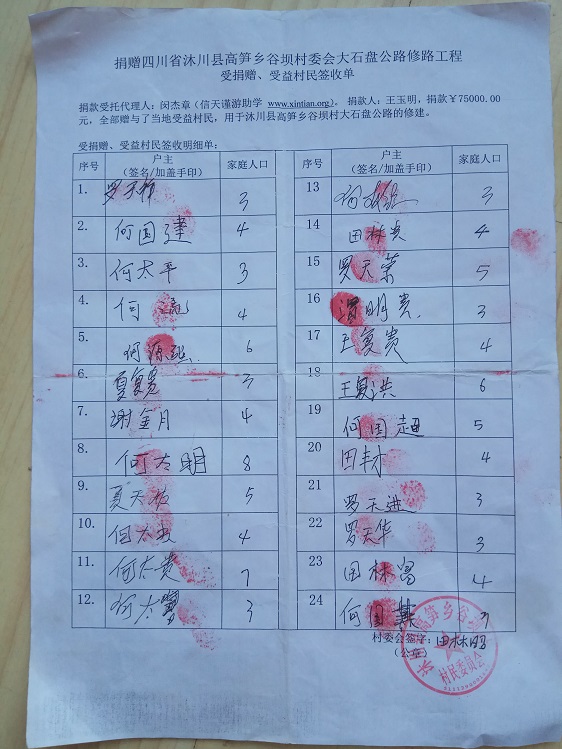 捐赠四川省沐川县高笋乡谷坝村委会大石盘公路修路工程
受捐赠、受益村民签收单
捐款受托代理人：闵杰章（信天谨游助学 www.xintian.org)。 捐款人：王玉明，捐款￥75000.00
元，全部赠与了当地受益村民，用于沐川县高笋乡谷坝村大石盘公路的修建。
受捐赠、受益村民签收明细单：
序号 户主（签名/加盖手印） 家庭人口
1. 3
2. 何国建 4
3. 何太平 3
4. 何 4
5. 何源 6
6. 夏复贵 3
7. 谢金月 4
8. 何太明 8
9. 夏天 5
10. 4
11. 何太贵 7
12. 何太 3
序号 户主（签名/加盖手印） 家庭人口
13 3
14 田林 4
15 罗天荣 5
16 明贵 3
17 王复贵 4
18 王复洪 6
19 何国超 5
20 田丰才 4
21 罗天进 3
22 罗天华 3
23 田林富 4
24 何国其
村委会签字：田林
（公章）
村民委员会